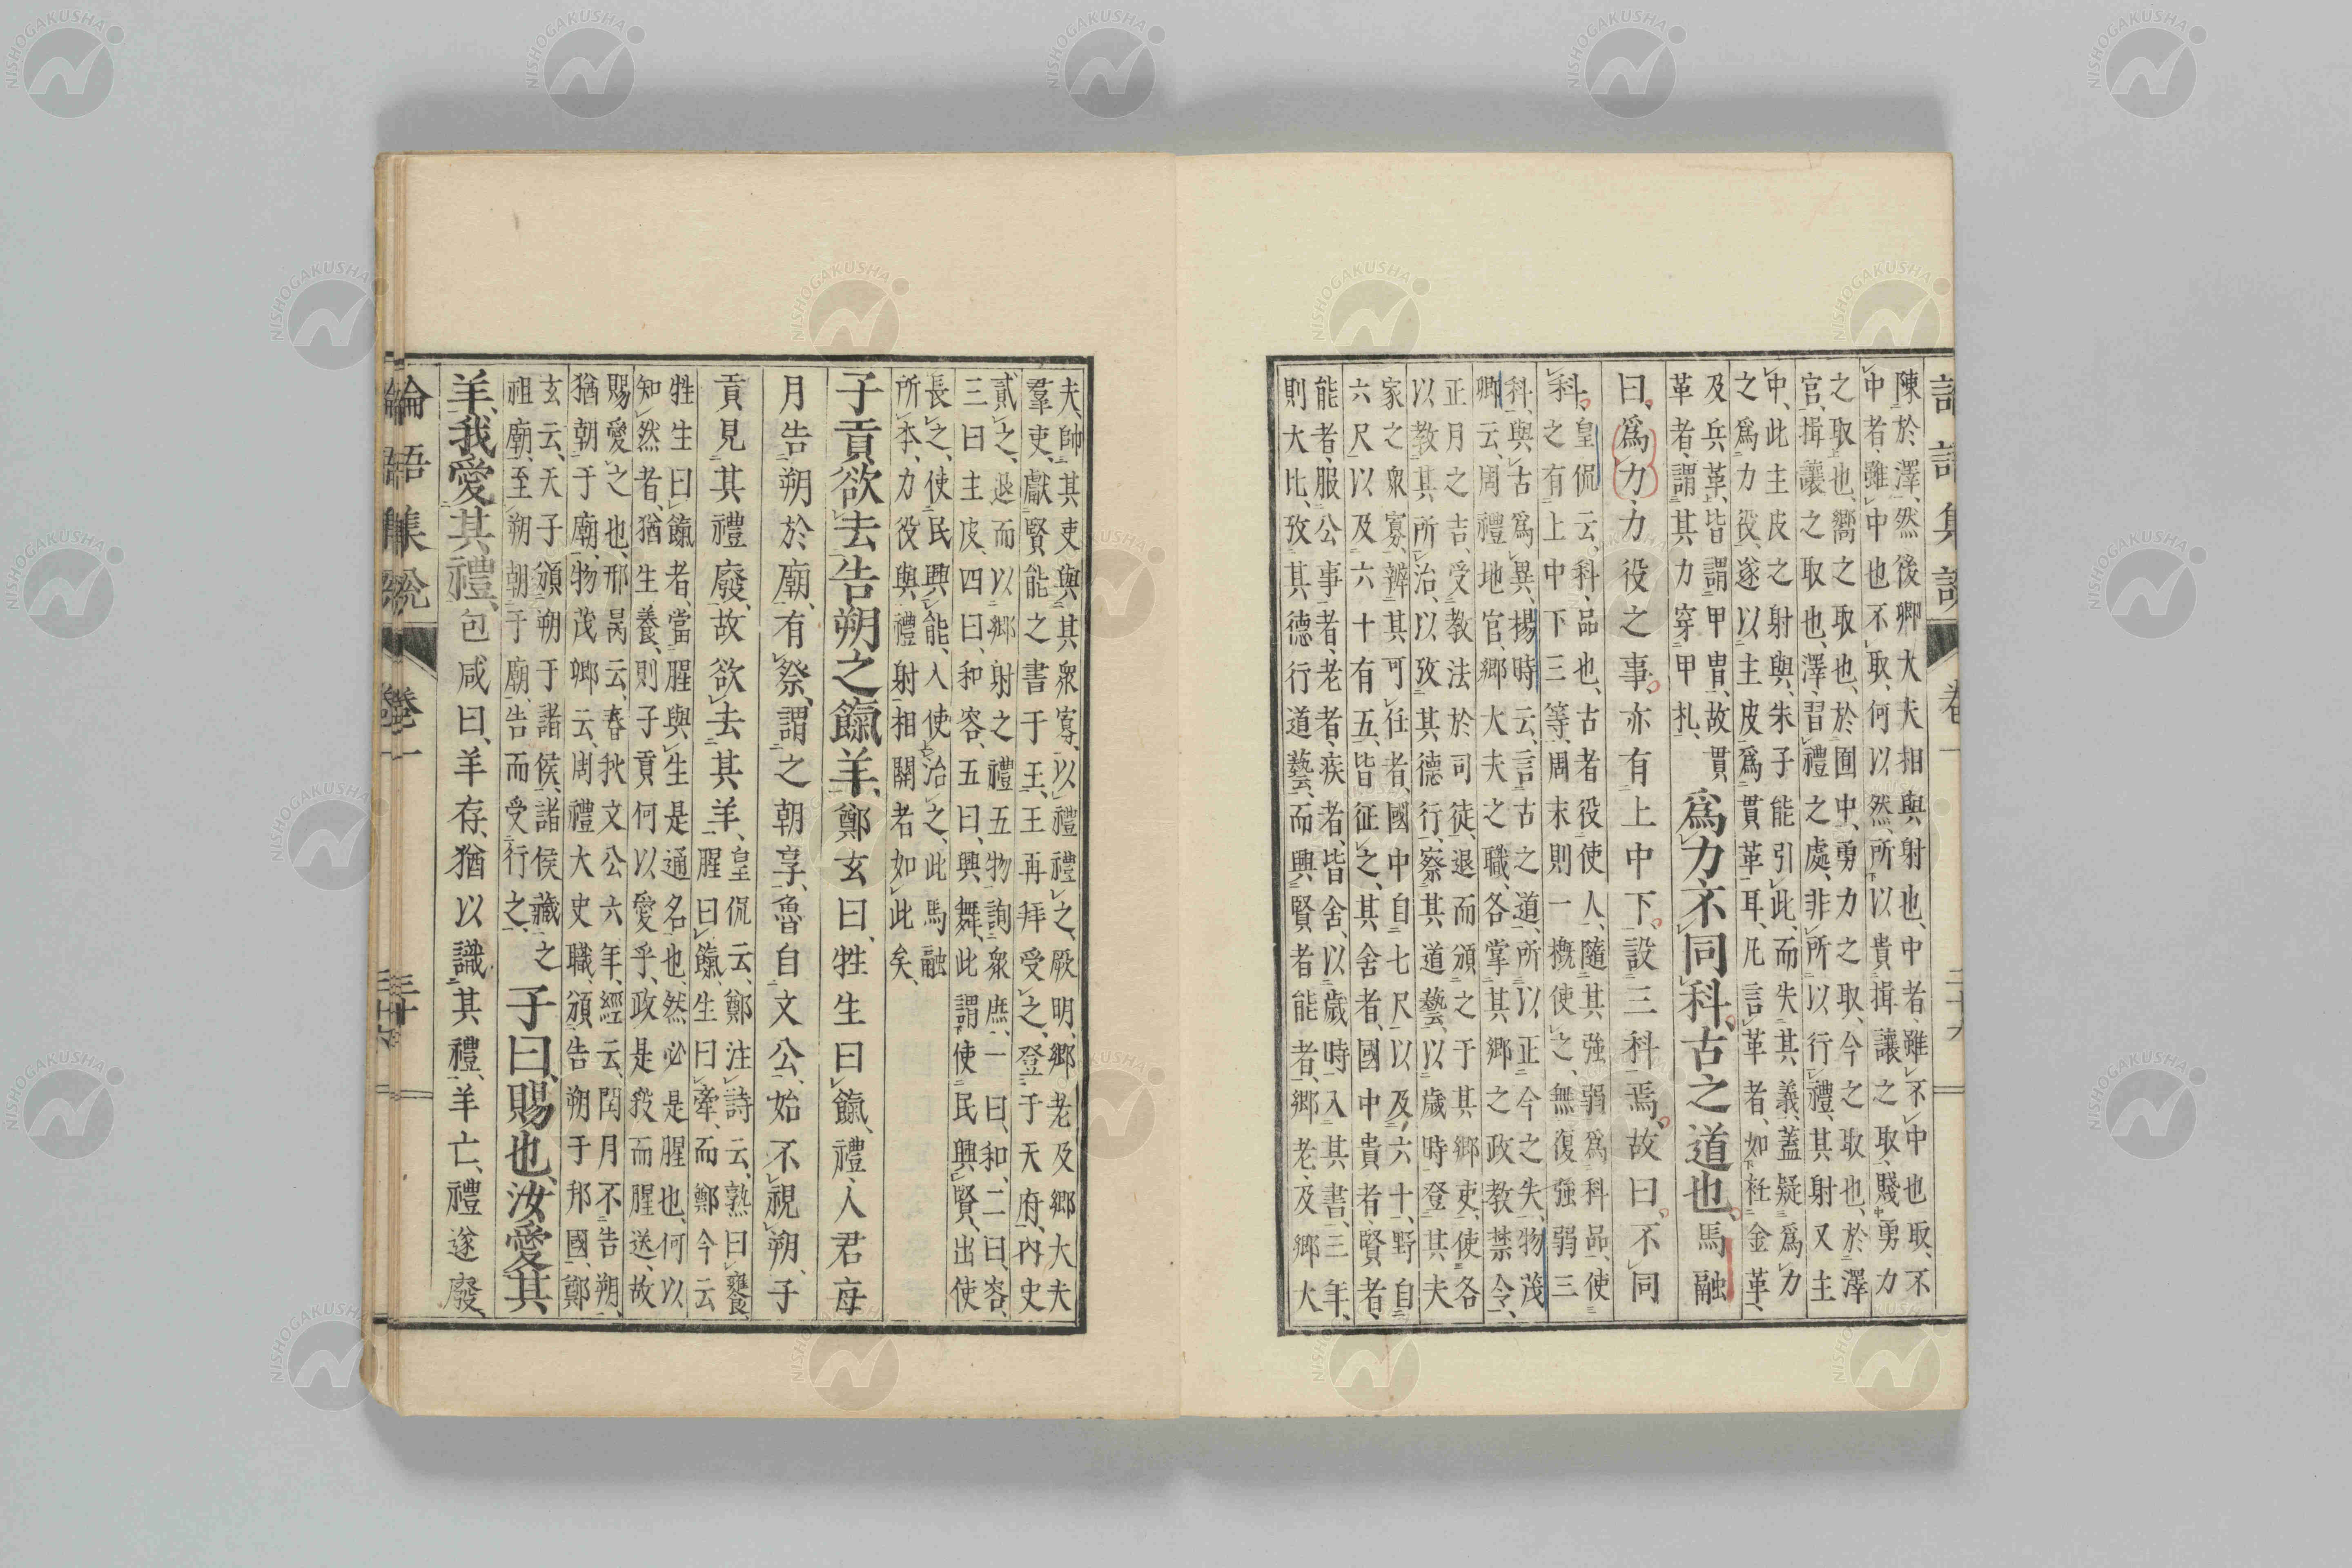 陳於澤、然後卿大夫相與射也、中者、雖不中也取、不
中者、雖中也不取、何以然、所以貴揖讓之取、賤勇力
之取也、嚮之取也、於囿中、勇力之取、今之取也、於澤
宮、揖讓之取也、澤、習禮之處、非所以行禮、其射又主
中、此主皮之射與、朱子能引此、而失其義、蓋疑爲力
之爲力役、遂以主皮爲貫革耳、凡言革者、如衽金革、
及兵革、皆謂甲冑、故貫
革者、謂其力穿甲札、
爲力不同科、古之道也、馬融
曰、爲力、力役之事、亦有上中下、設三科焉、故曰、不同
科、皇侃云、科、品也、古者役使人、隨其強弱爲科品、使
之有上中下三等、周末則一概使之、無復強弱三
科、與古爲異、楊時云、言古之道、所以正今之失、物茂
卿云、周禮地官、鄉大夫之職、各掌其鄉之政教禁令、
正月之吉、受教法於司徒、退而頒之于其鄉吏、使各
以教其所治、以攷其德行、察其道藝、以歲時登其夫
家之衆寡、辨其可任者、國中自七尺以及六十、野自
六尺以及六十有五、皆征之、其舍者、國中貴者、賢者、
能者、服公事者、老者、疾者、皆舍、以歲時入其書、三年、
則大比、攷其德行道藝、而興賢者能者、鄉老、及鄉大
夫、帥其吏與其衆寡、以禮禮之、厥明、鄉老及鄉大夫
羣吏、獻賢能之書于王、王再拜受之、登于天府、內史
貳之、退而以鄉射之禮五物詢衆庶、一曰、和、二曰、容、
三曰主皮、四曰、和容、五曰、興舞、此謂使民興賢、出使
長之、使民興能、入使治之、此馬融
所本、力役與禮射相關者如此矣、
子貢欲去告朔之餼羊、鄭玄曰、牲生曰餼、禮、人君每
月告朔於廟、有祭、謂之朝享、魯自文公、始不視朔、子
貢見其禮廢、故欲去其羊、
皇侃云、鄭注詩云、熟曰饔
腥曰餼、生曰牽、而鄭今云
牲生曰餼者、當腥與生是通名也、然必是腥也、何以
知然者、猶生養、則子貢何以愛乎、政是殺而腥送、故
賜愛之也、邢昺云、春秋文公六年、經云、閏月不告朔、
猶朝于廟、物茂卿云、周禮大史職、頒告朔于邦國、鄭
玄云、天子頒朔于諸侯、諸侯藏之
祖廟、至朔朝于廟、告而受行之、
子曰、賜也、汝愛其
羊、我愛其禮、包咸曰、羊存、猶以識其禮、羊亡、禮遂廢、
論語集說 卷一
NISHOGAKUSHA